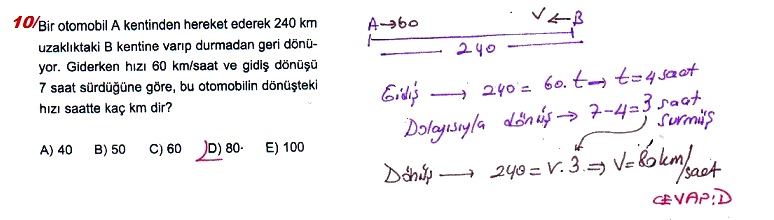 10/ Bir otomobil A kentinden hareket ederek 240 km
uzaklıktaki B kentine varıp durmadan geri dönü-
yor. Giderken hızı 60 km/saat ve gidiş dönüşü
7 saat sürdüğüne göre, bu otomobilin dönüşteki
hızı saatte kaç km dir?
A) 40 B) 50 C) 60 D) 80 E) 100
A→60 V← B
240
Gidiş → 240 = 60.t → t=4 saat
Dolayısıyla dönüş → 7-4=3 saat
sürmüş
Dönüş → 240 = V.3 ⇒ V=80km/saat
CEVAP:D